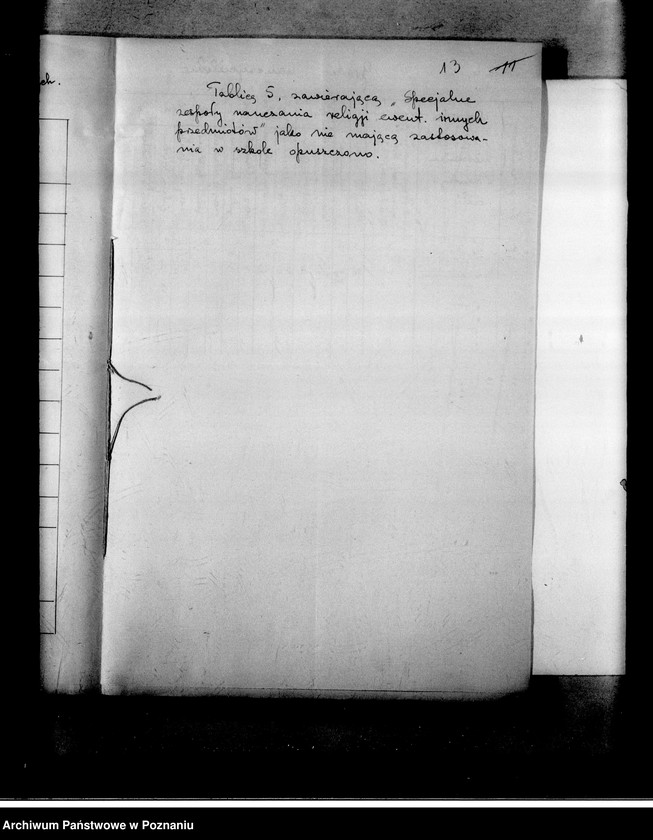 ch.
13 11
Tablicę 5, zawierającą „Specjalne
zespoły nauczania religji ewent. innych
przedmiotów" jako nie mającą zastosowa-
nia w szkole opuszczono.
Archiwum Państwowe w Poznaniu